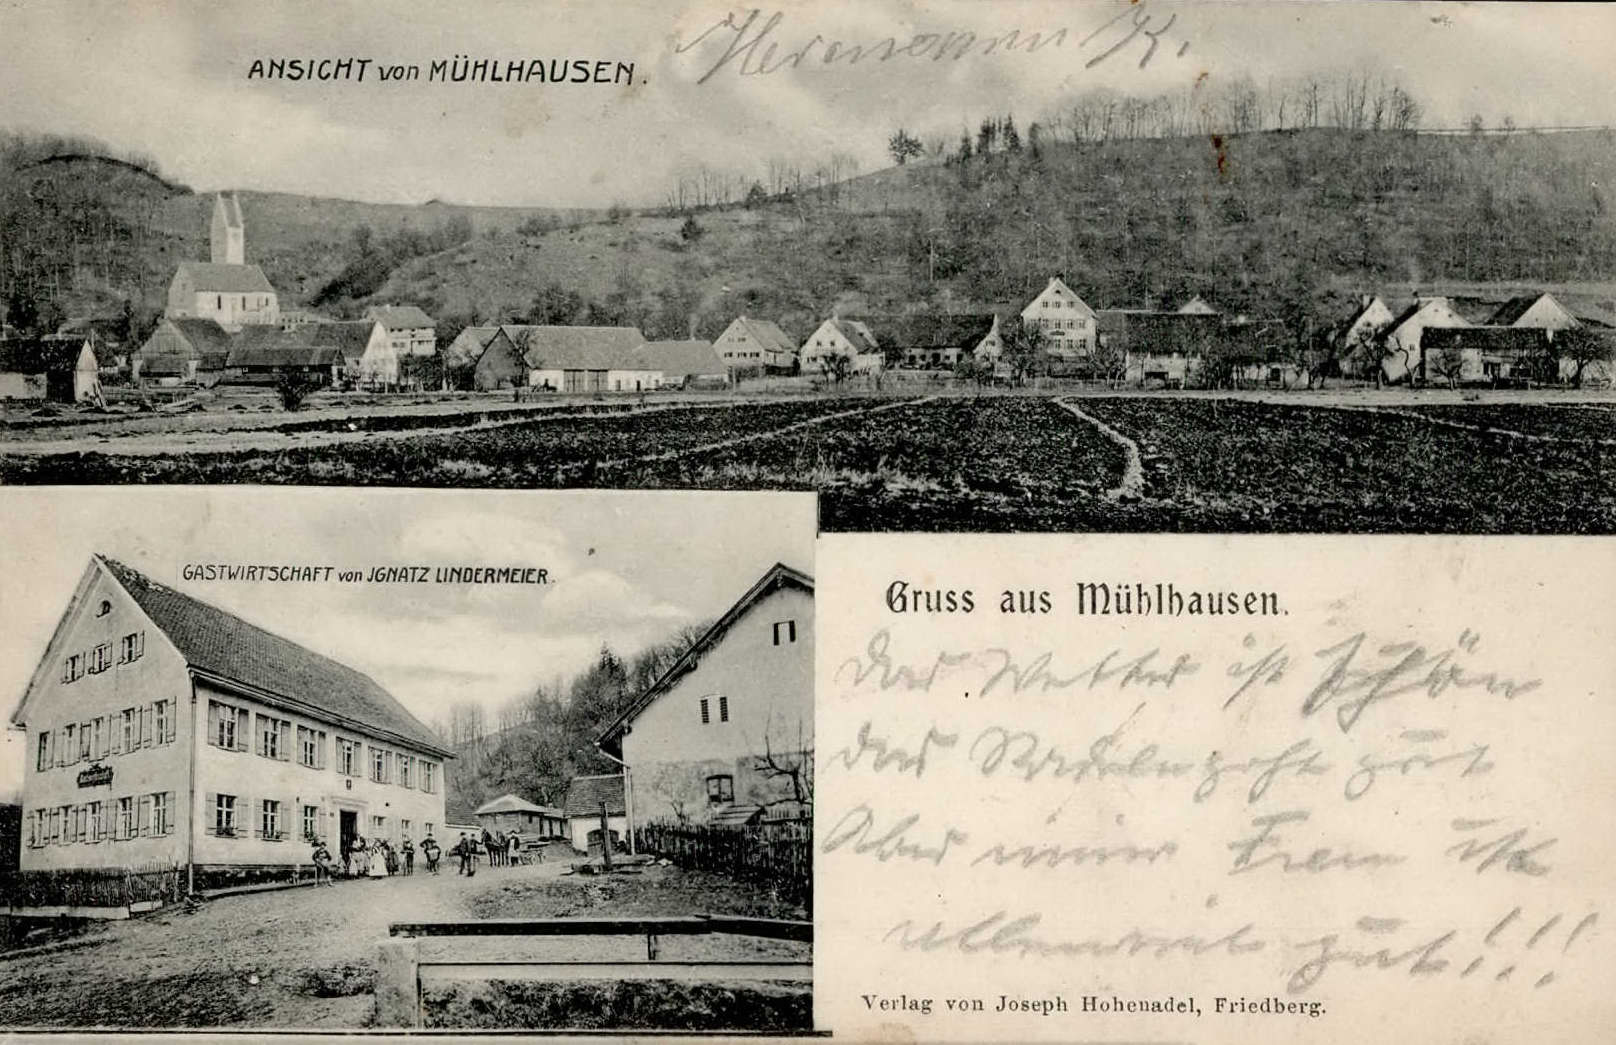 ANSICHT von MÜHLHAUSEN.
Hermann K.
GASTWIRTSCHAFT von JGNATZ LINDERMEIER.
Gruss aus Mühlhausen.
Das Wetter ist schön
das Radeln geht gut
Aber meine Frau ist
allemeist gut!!!
Verlag von Joseph Hohenadel, Friedberg.